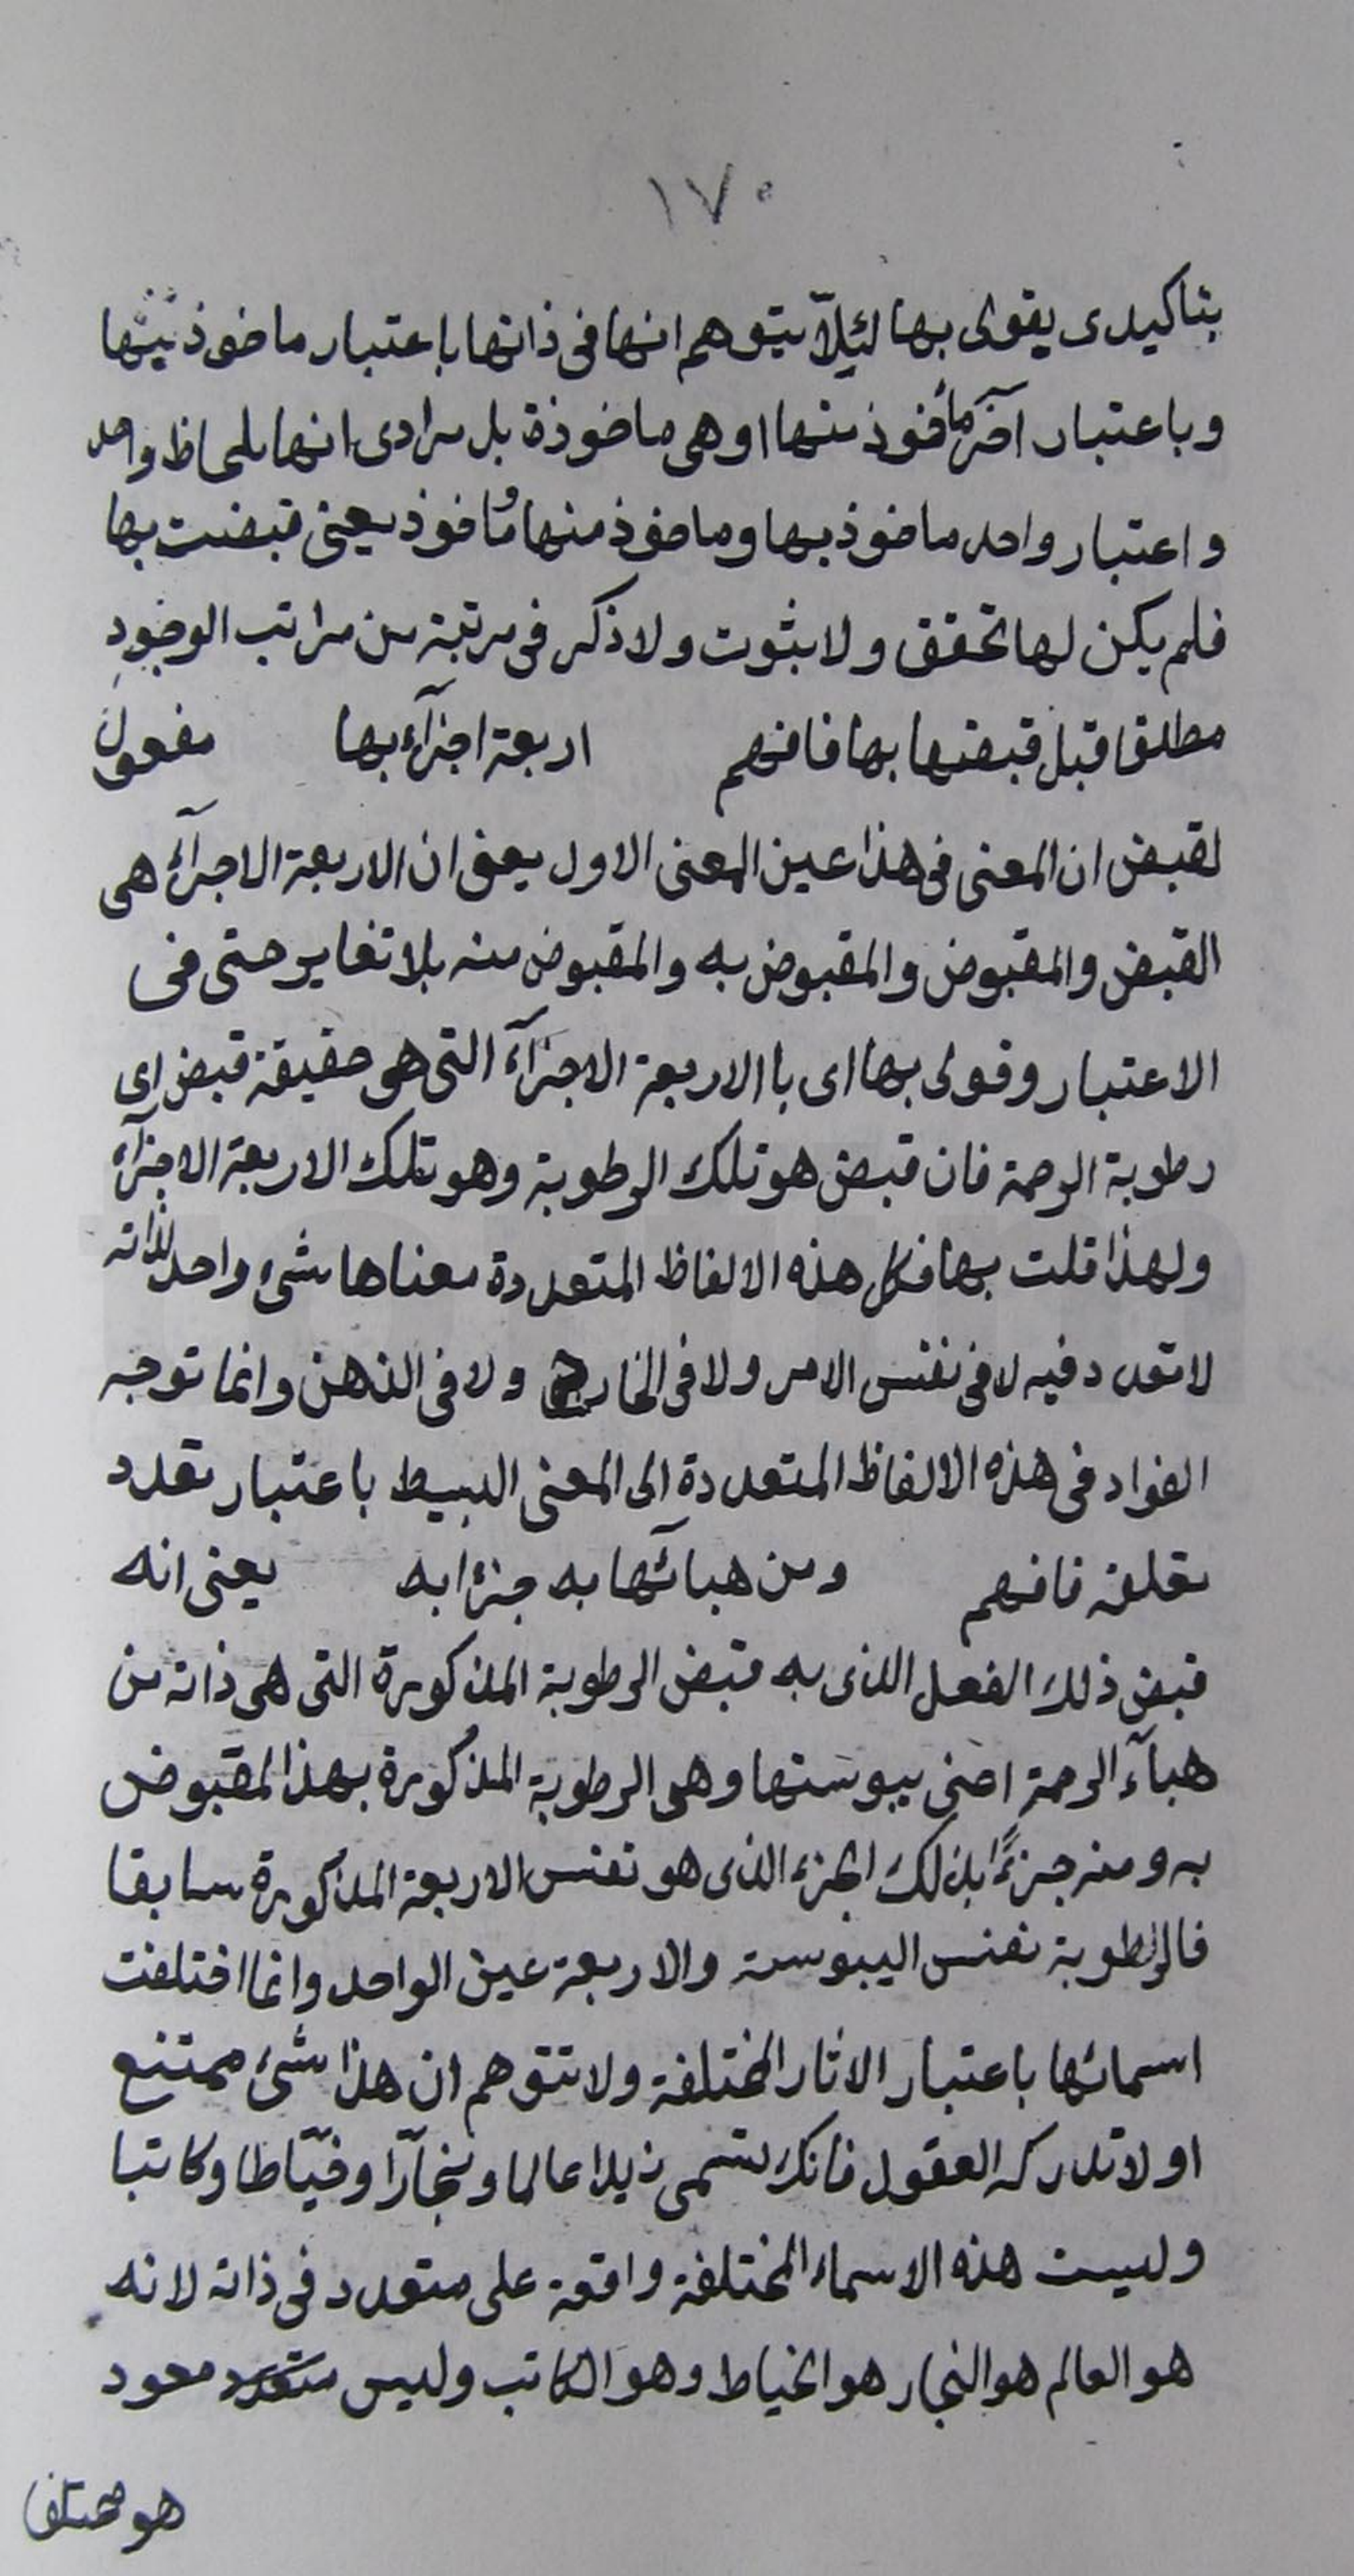 ١٧٠
بتاكيدى يقولى بها لئلّا يتوهم انها فى ذاتها باعتبار ماخوذ بها
وباعتبار آخر مأخوذ منها او هى ماخوذة بل مرادى انها بلحاظ واحد
واعتبار واحد ماخوذ بها وماخوذ منها ومأخوذ يعنى قبضت بها
فلم يكن لها تحقق ولا ثبوت ولا ذكر فى مرتبة من مراتب الوجود
مطلقا قبل قبضها بها فافهم اربعة اجزآء بها مفعول
لقبض ان المعنى فى هذا عين المعنى الاول يعنى ان الاربعة الاجزآء هى
القبض والمقبوض والمقبوض به والمقبوض منه بلا تغاير حتى فى
الاعتبار وقولى بها اى باالاربعة الاجزآء التى هى حقيقة قبض اى
رطوبة الرحمة فان قبض هو تلك الرطوبة وهو تلك الاربعة الاجزآء
ولهذا قلت بها فكل هذه الالفاظ المتعددة معناها شىء واحد لذاته
لا تعدد فيه لا فى نفس الامر ولا فى الخارج ولا فى الذهن وانما توجه
الفواد فى هذه الالفاظ المتعددة الى المعنى البسيط باعتبار تعدد
تعلقه فافهم ومن هبائها به جزءا به يعنى انه
قبض ذلك الفعل الذى به قبض الرطوبة المذكورة التى هى ذاته من
هبآء الرحمة اعنى يبوستها وهى الرطوبة المذكورة بهذا المقبوض
به ومنه جزءًا بذلك الجزء الذى هو نفس الاربعة المذكورة سابقا
فالرطوبة نفس اليبوسة والاربعة عين الواحد وانما اختلفت
اسمائها باعتبار الاثار المختلفة ولا تتوهم ان هذا شىء ممتنع
او لا تدركه العقول فانك تسمى زيدا عالما ونجّارا وخيّاطا وكاتبا
وليست هذه الاسماء المختلفة واقعة على متعدد فى ذاته لانه
هو العالم هو النجار هو الخياط وهو الكاتب وليس متعدد
هو مختلفا